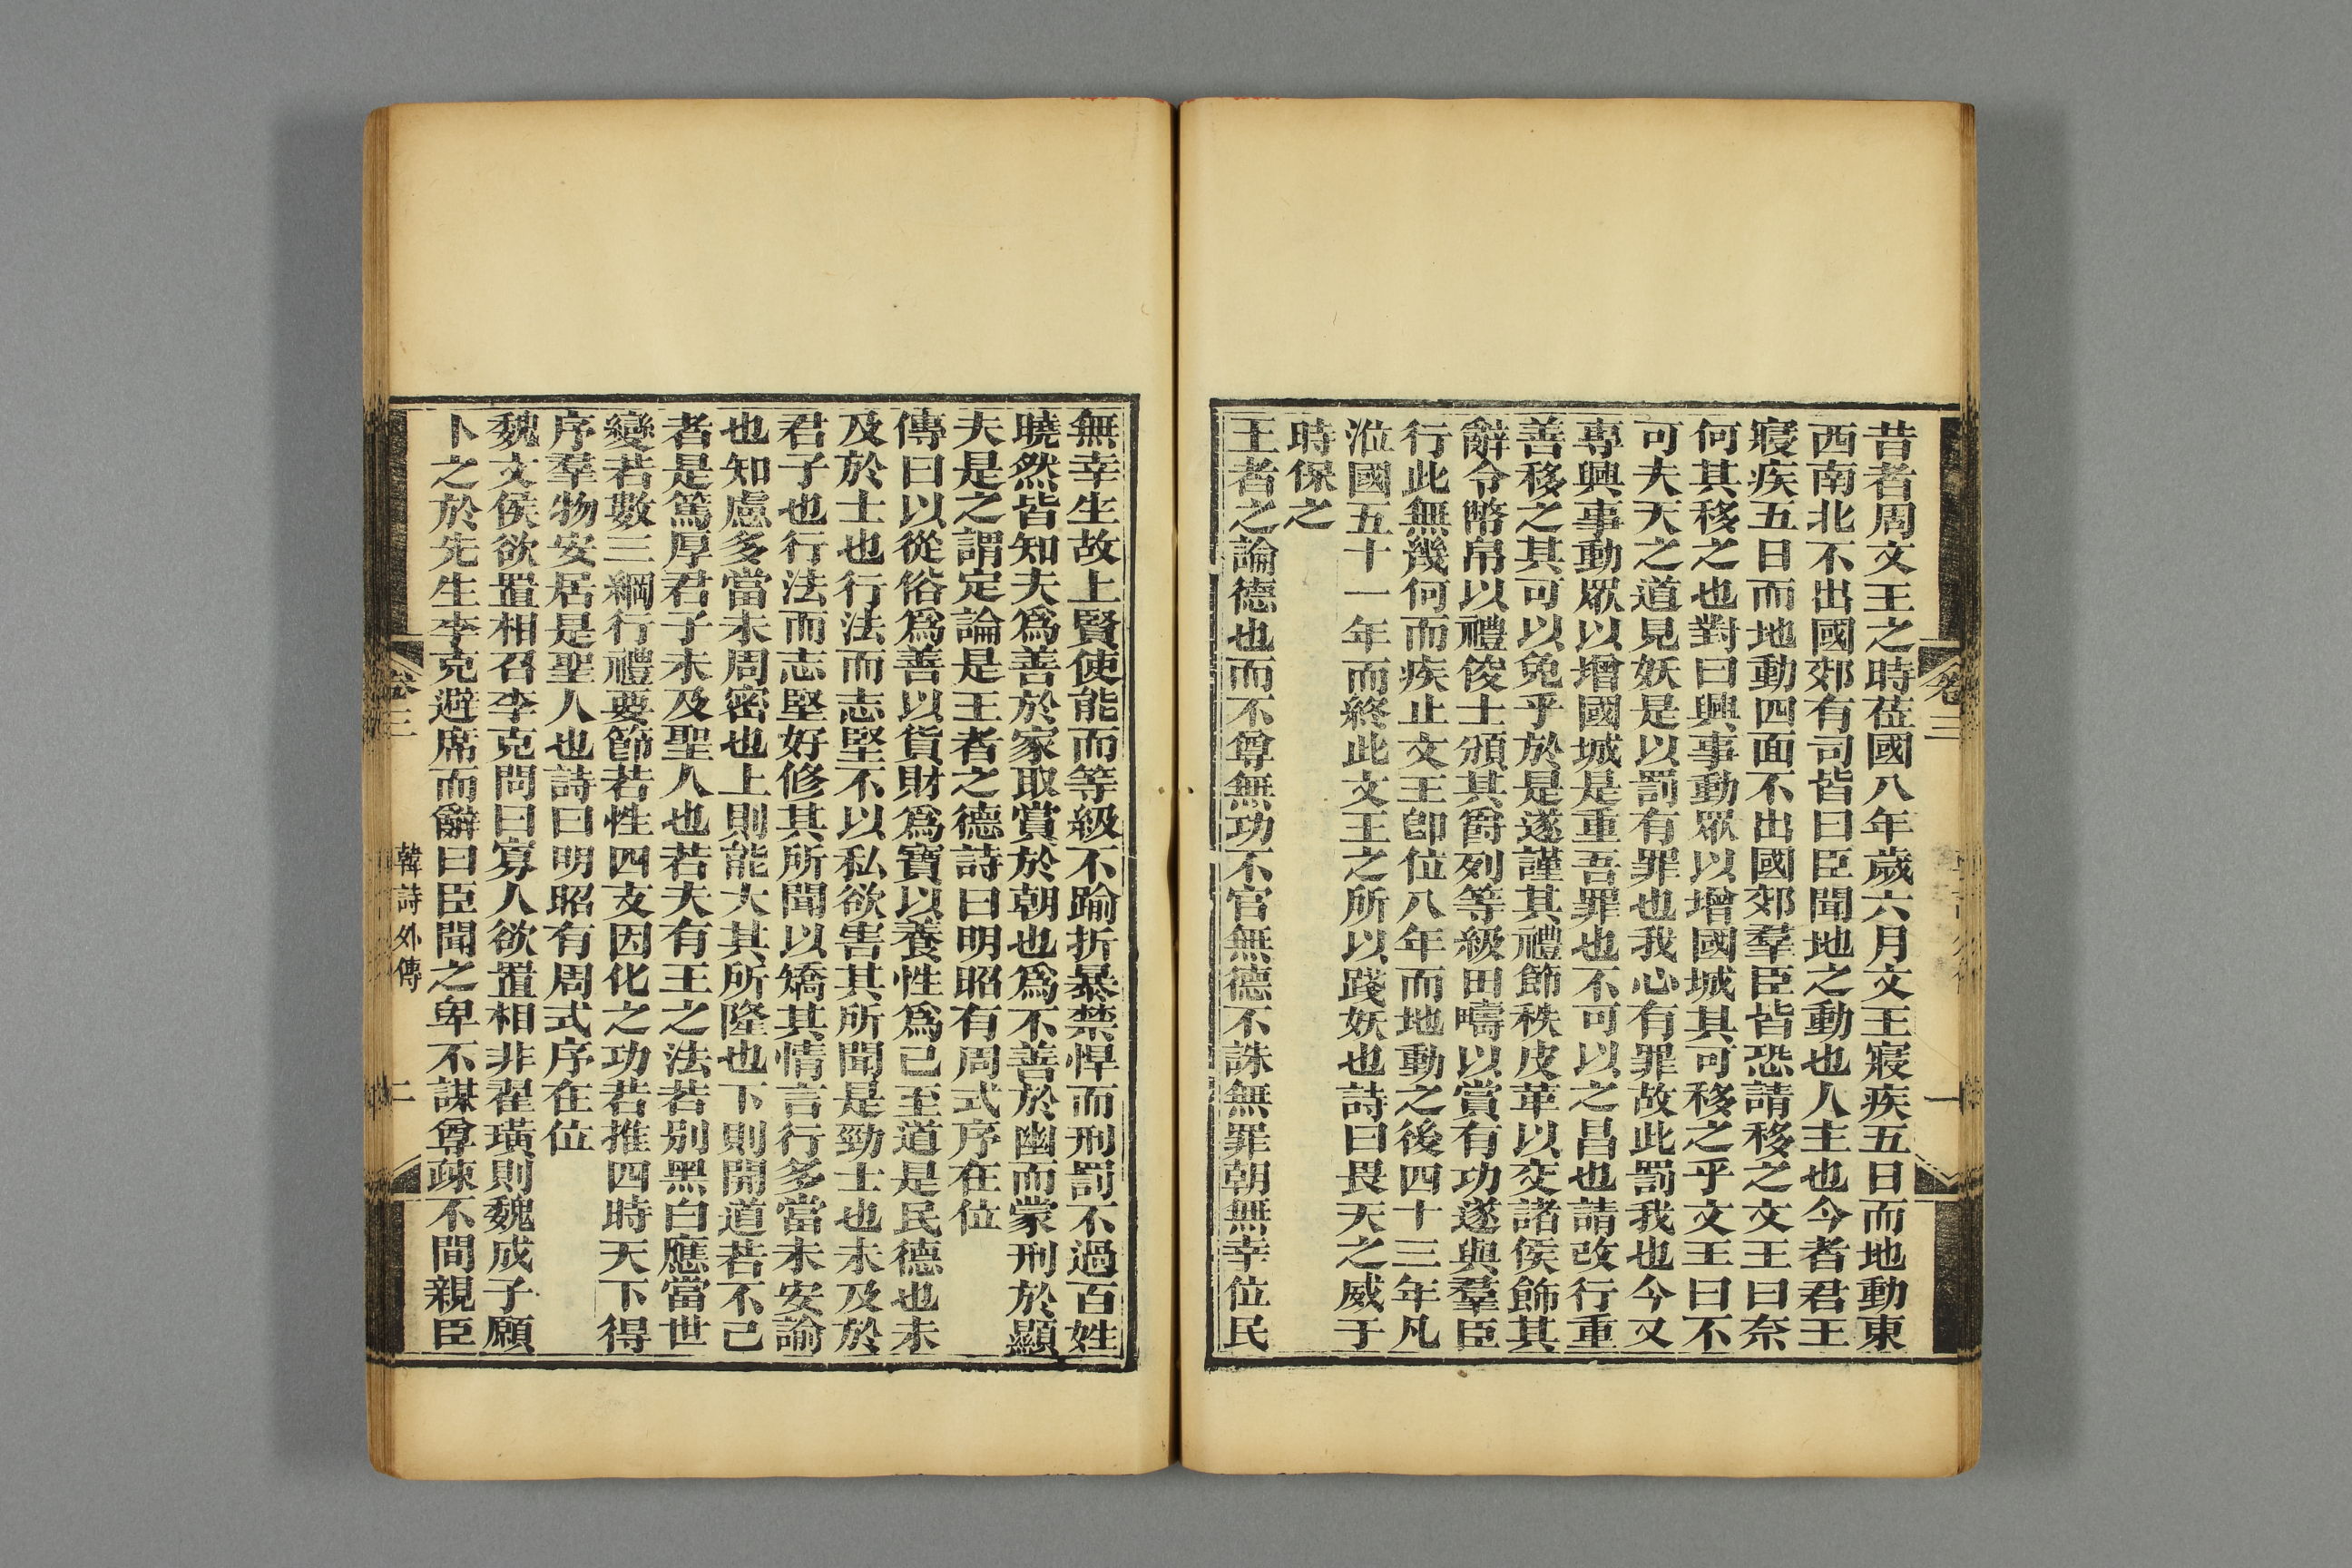 昔者周文王之時莅國八年歲六月文王寢疾五日而地動東
西南北不出國郊有司皆曰臣聞地之動也人主也今者君王
寢疾五日而地動四面不出國郊羣臣皆恐請移之文王曰奈
何其移之也對曰興事動眾以增國城其可移之乎文王曰不
可夫天之道見妖是以罰有罪也我心有罪故此罰我也今又
專興事動眾以增國城是重吾罪也不可以之昌也請改行重
善移之其可以免乎於是遂謹其禮節秩皮革以交諸侯飾其
辭令幣帛以禮俊士頒其爵列等級田疇以賞有功遂與羣臣
行此無幾何而疾止文王卽位八年而地動之後四十三年凡
涖國五十一年而終此文王之所以踐妖也詩曰畏天之威于
時保之
王者之論德也而不尊無功不官無德不誅無罪朝無幸位民
卷三
一
無幸生故上賢使能而等級不踰折暴禁悍而刑罰不過百姓
曉然皆知夫爲善於家取賞於朝也爲不善於幽而蒙刑於顯
夫是之謂定論是王者之德詩曰明昭有周式序在位
傳曰以從俗爲善以貨財爲寶以養性爲己至道是民德也未
及於士也行法而志堅不以私欲害其所聞是勁士也未及於
君子也行法而志堅好修其所聞以矯其情言行多當未安諭
也知慮多當未周密也上則能大其所隆也下則開道若不己
者是篤厚君子未及聖人也若夫有王之法若別黑白應當世
變若數三綱行禮要節若性四支因化之功若推四時天下得
序羣物安居是聖人也詩曰明昭有周式序在位
魏文侯欲置相召李克問曰寡人欲置相非翟璜則魏成子願
卜之於先生李克避席而辭曰臣聞之卑不謀尊疎不間親臣
卷三
韓詩外傳
二